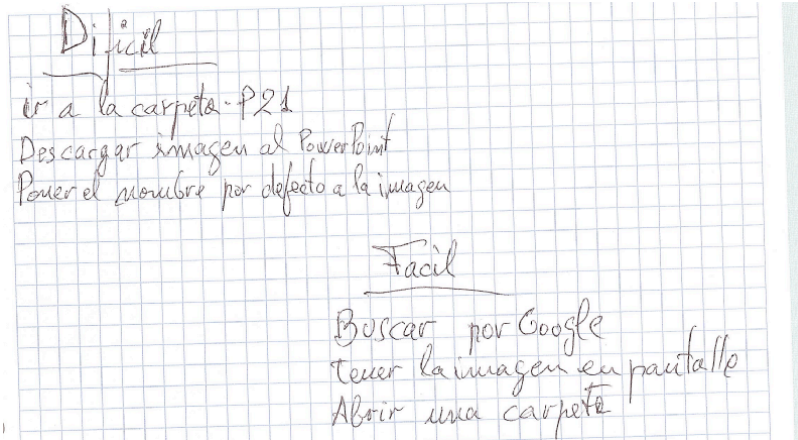 Dificil
ir a la carpeta - P21
Descargar imagen al PowerPoint
Poner el nombre por defecto a la imagen
Facil
Buscar por Google
tener la imagen en pantalla
Abrir una carpeta